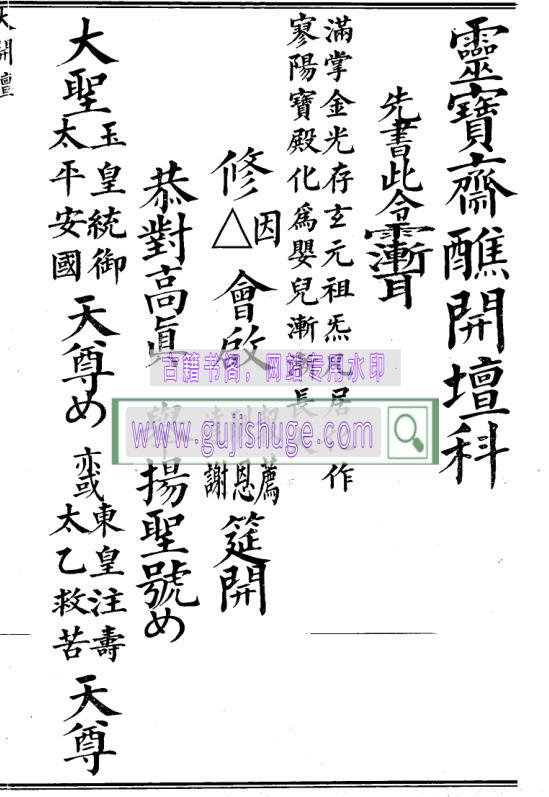 靈寶齋醮開壇科
先書此令
滿掌金光存玄元祖炁
作
寥陽寶殿化爲嬰兒漸
長
修因△會啟
薦
恩
謝
筵開
恭對高眞
揚聖號め
大聖玉皇統御
太平安國
天尊め
或東皇注壽
太乙救苦
天尊
大開壇
古籍书阁，网站专用水印
www.gujishuge.com